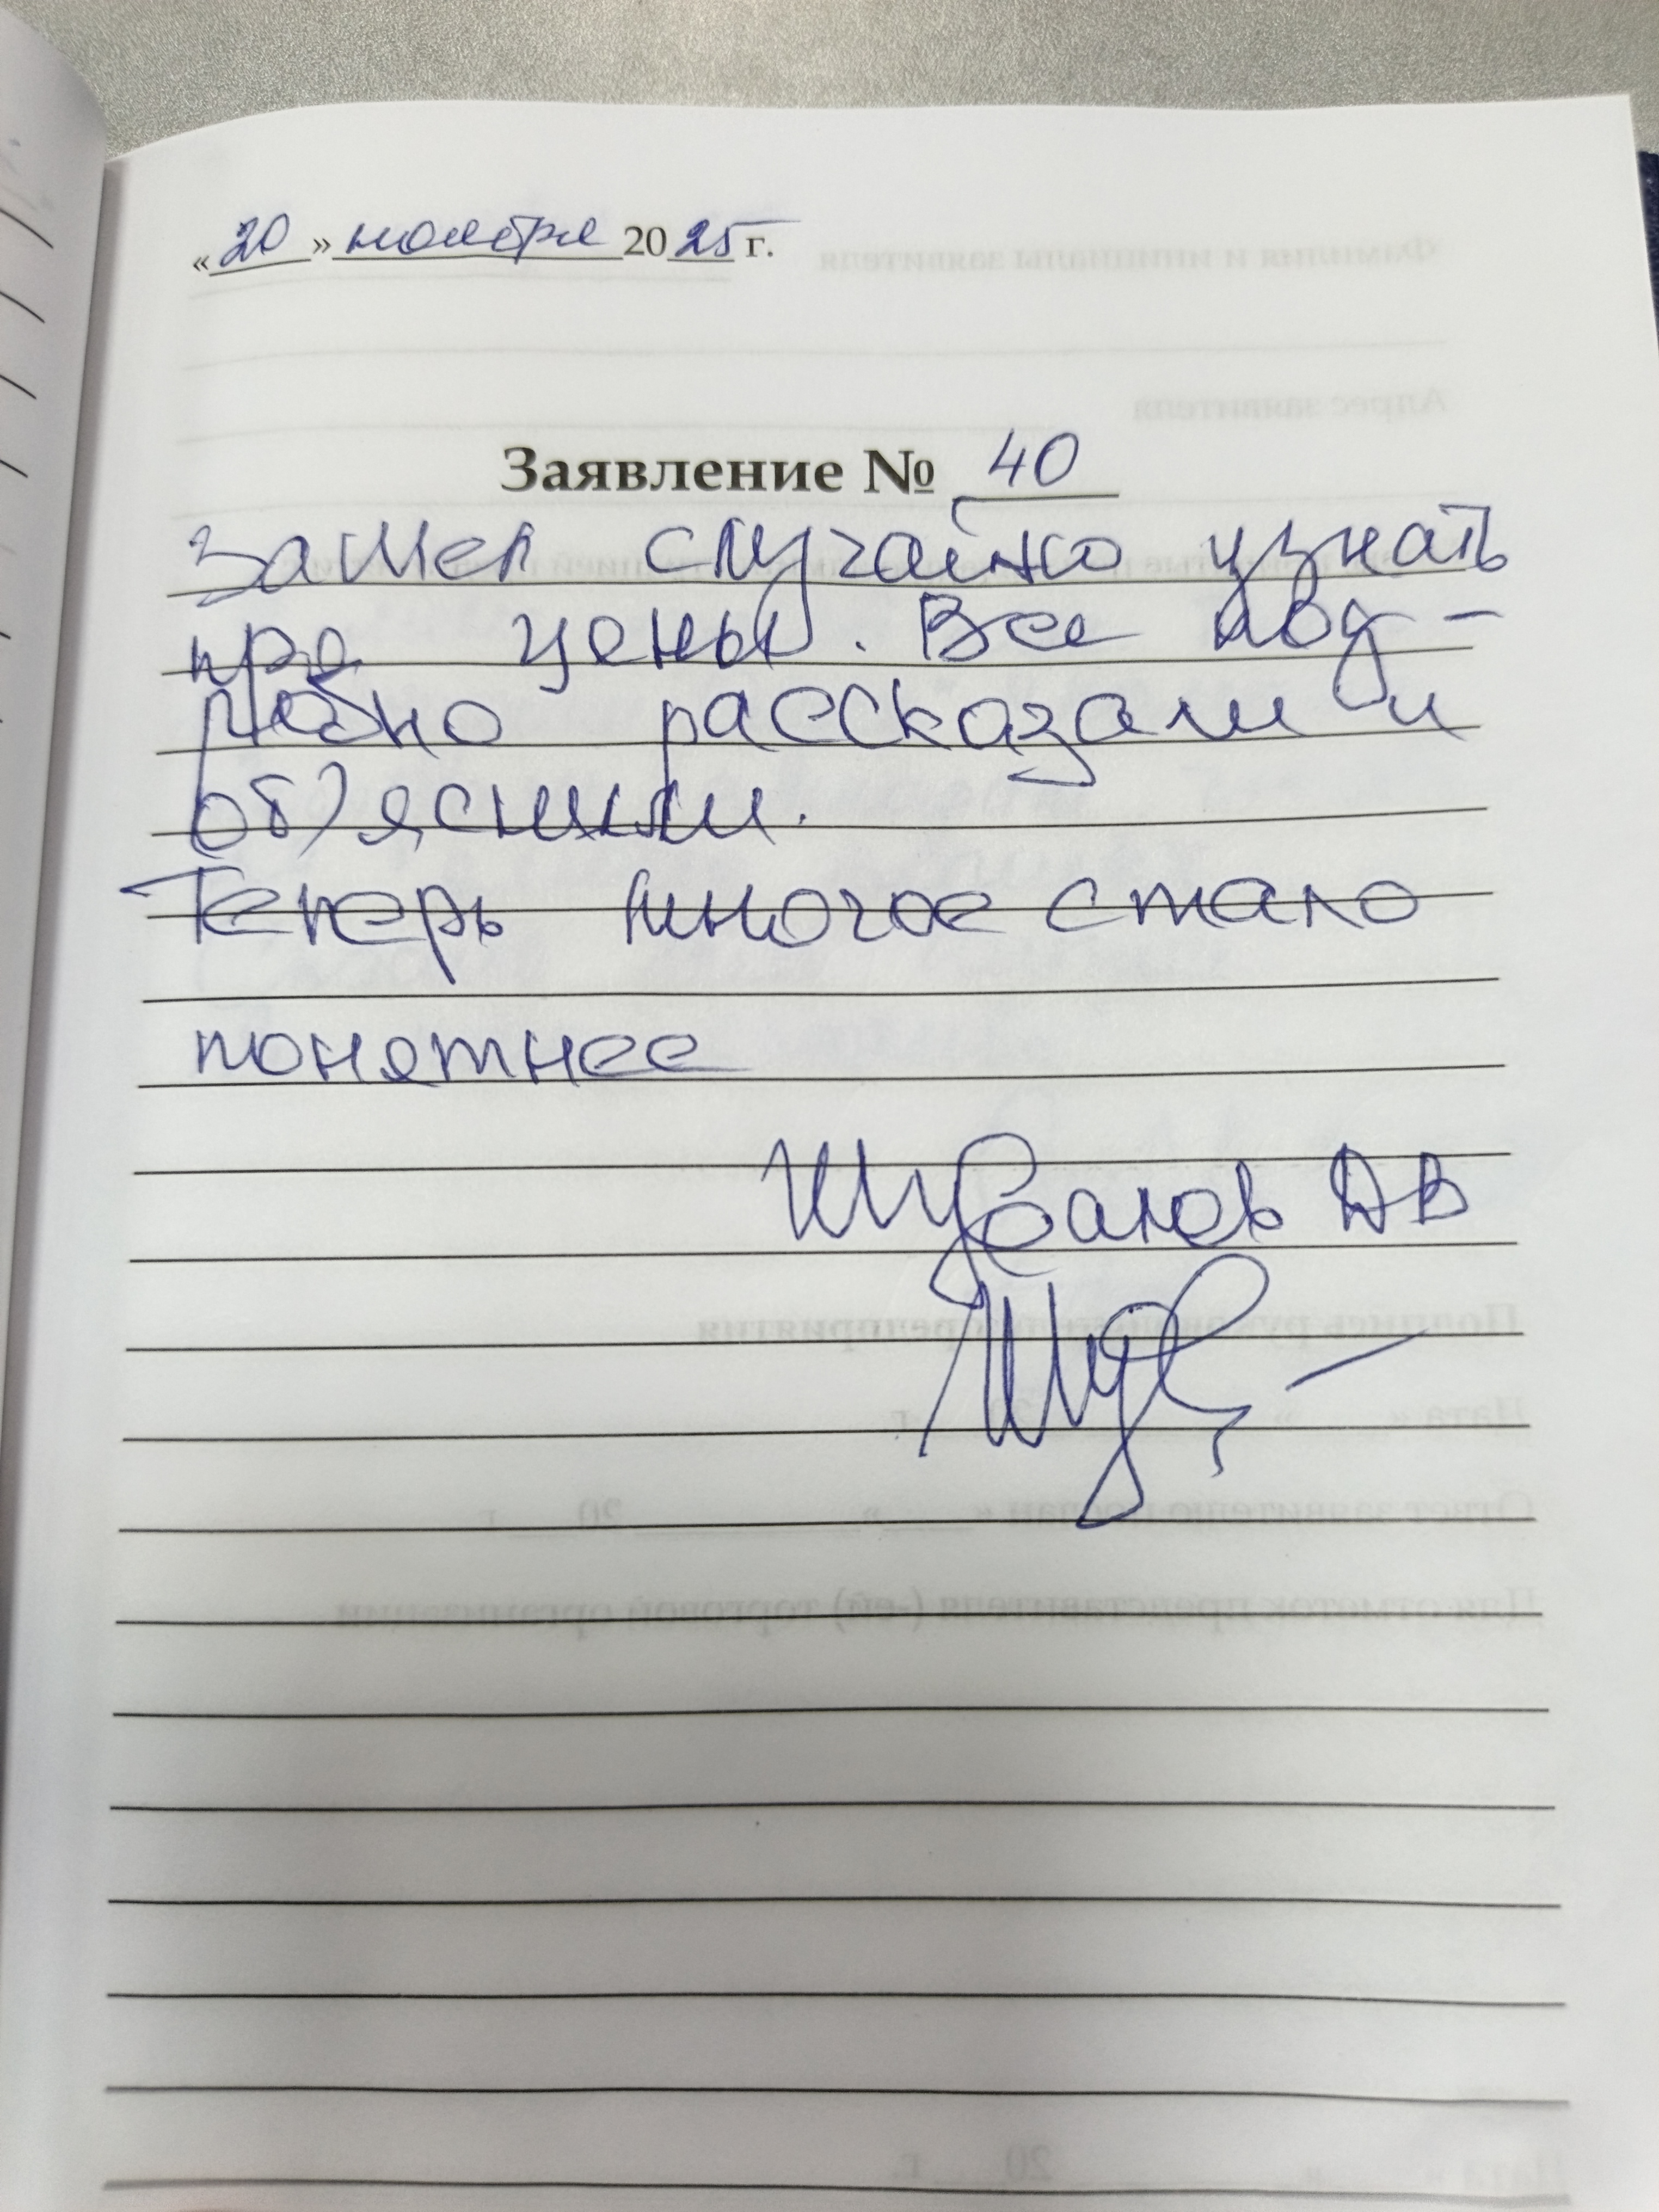 «20» ноября 2025 г.
Заявление № 40
Зашел случайно узнать
про цены. Все под-
робно рассказали и
объяснили.
Теперь многое стало
понятнее
ДВ